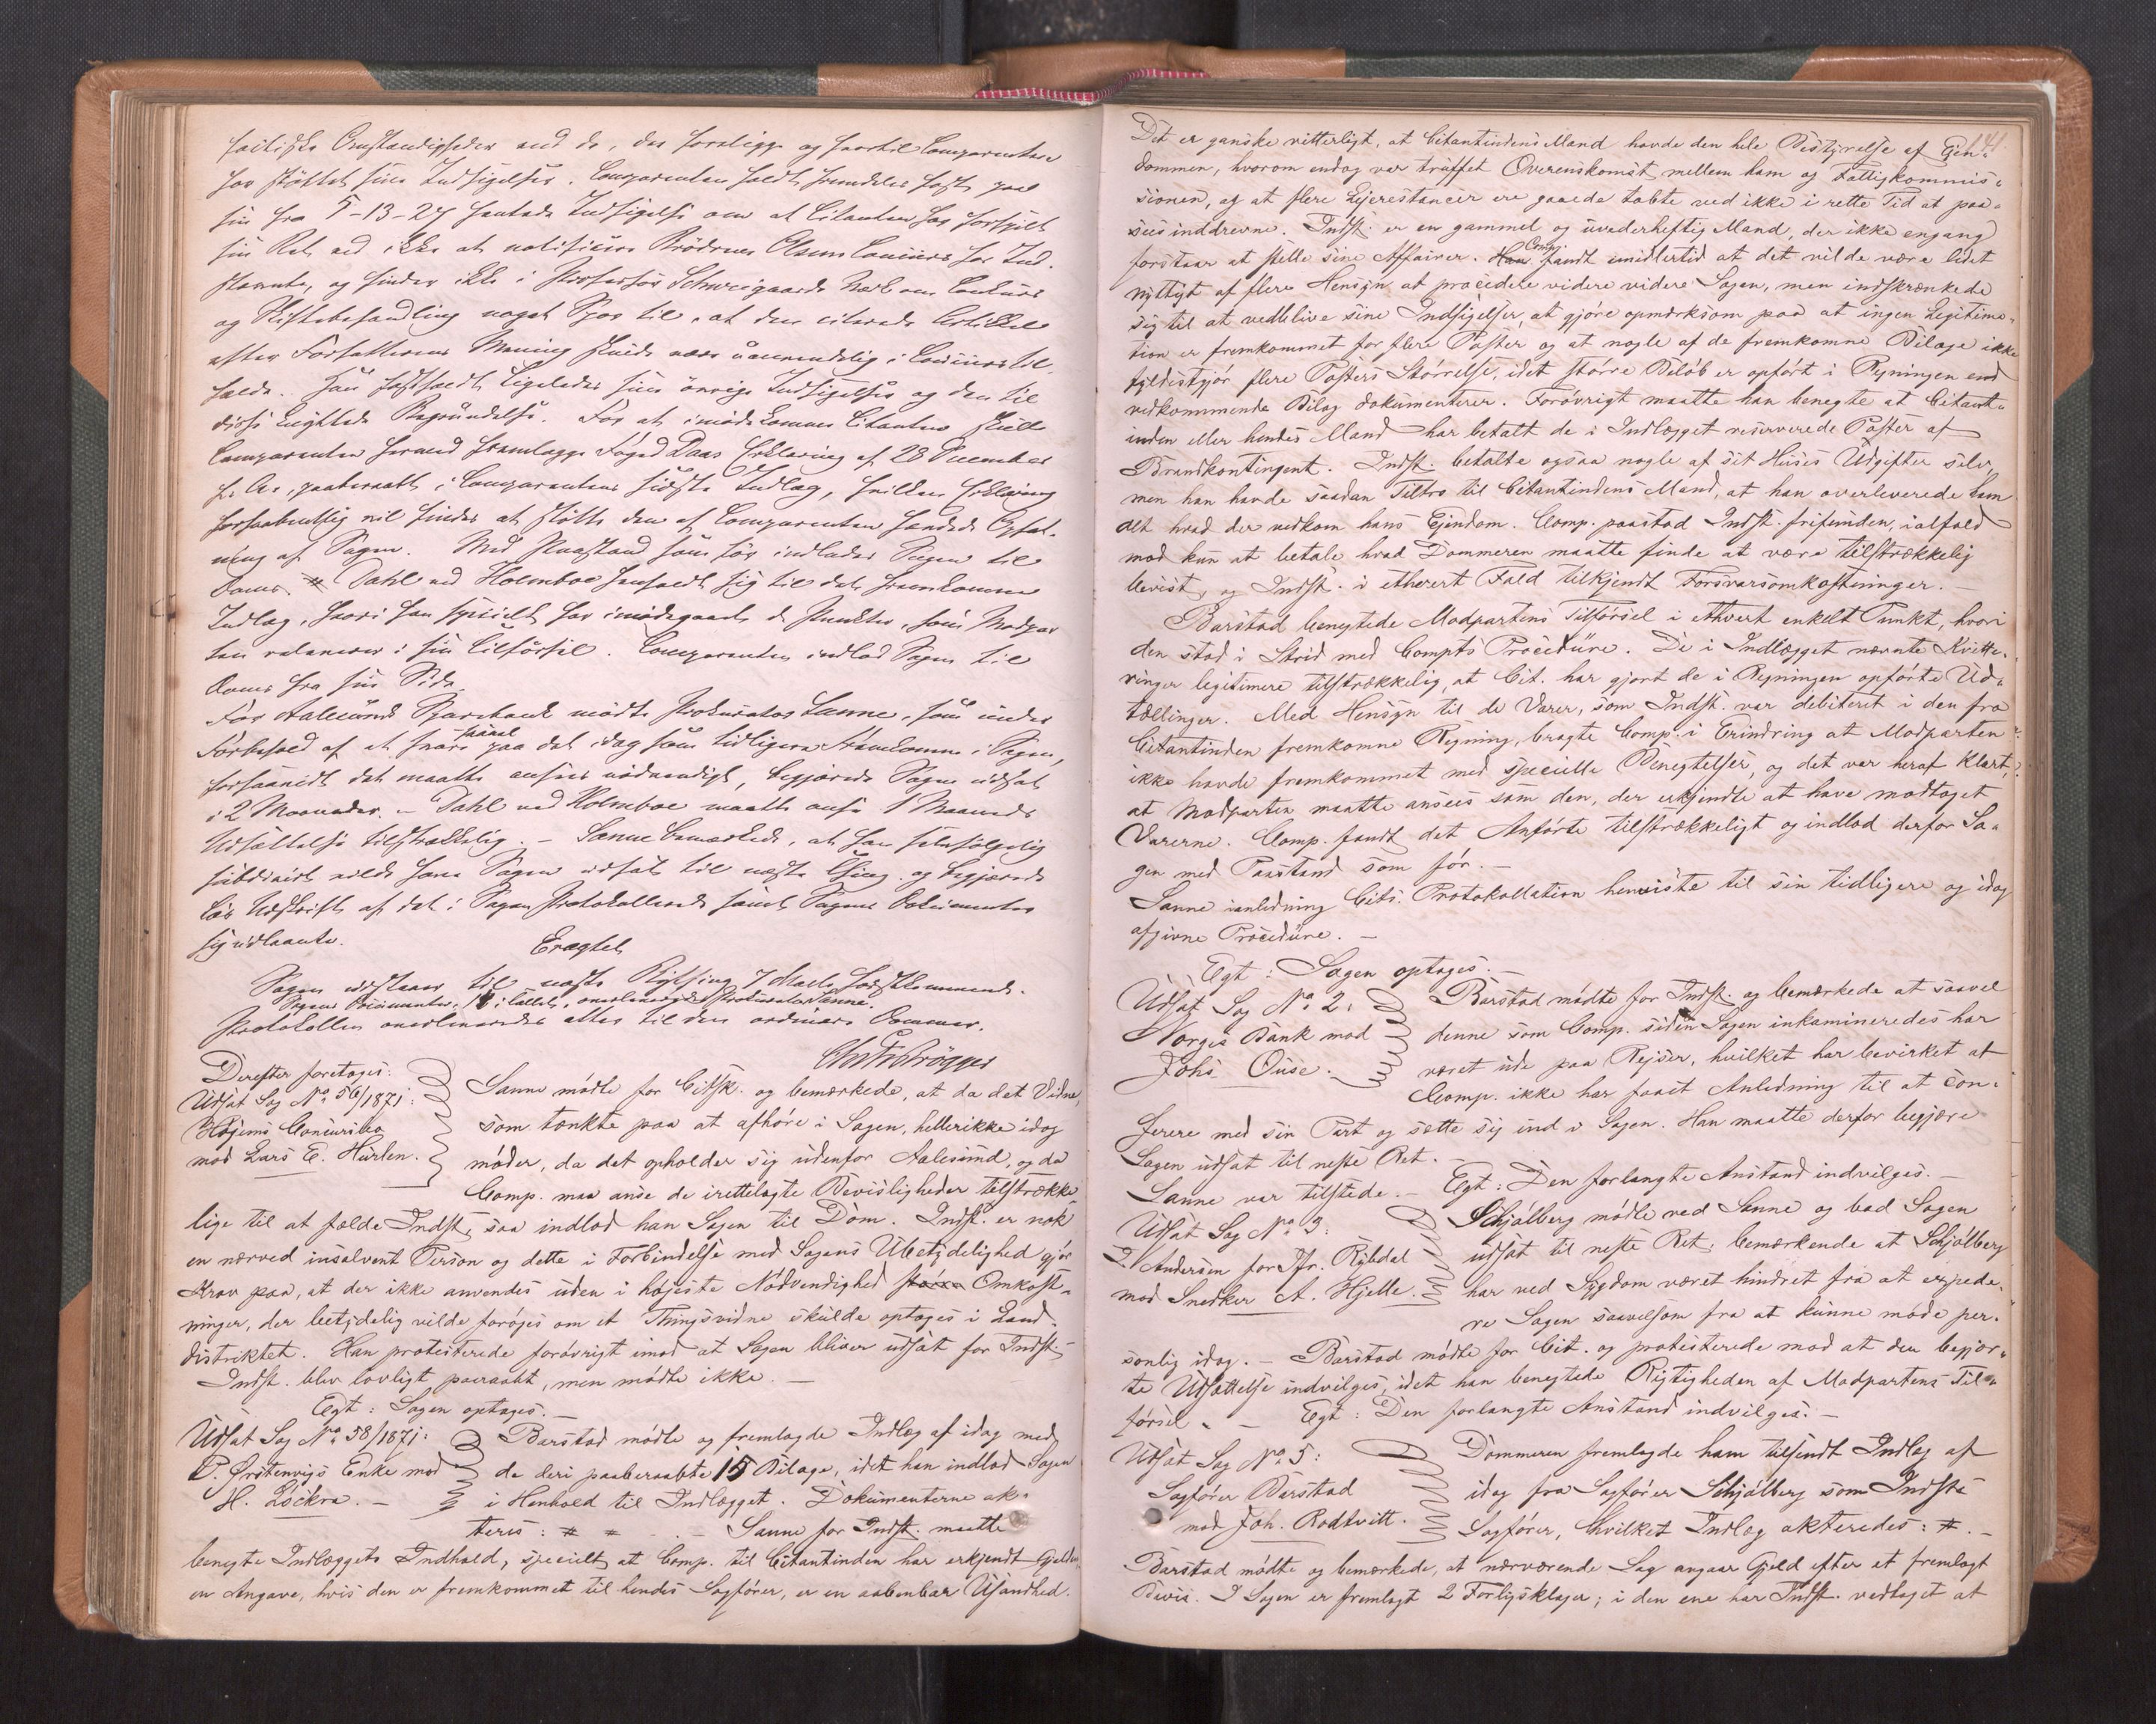 faktiske Omstændigheder end de, der foreligge og hvortil Comparenten
har støttet sine Indsigelser. Comparenten holdt fremdeles fast paa
sin fra 5-13-27 hentede Indsigelse om at Citanten har forspildt
sin Ret ved ikke at notificere Brødrene Olsens Concurs for Ind-
stevnte, og finder ikke i Professor Schweigaards Værk om Concurs
og Skiftebehandling noget Spor til, at den citerede Artikkel
efter Forfatterens Mening skulde være uanvendelig i Concurstil-
fælde. Han fastholdt ligeledes sine øvrige Indsigelser og den til
disse knyttede Begrundelse. For at imødekomme Citanten skulde
Comparenten herved fremlægge Foged Daas Erklæring af 28 December
f. A., paaberaabt i Comparentens sidste Indlæg, hvilken Erklæring
forhaabentlig vil findes at støtte den af Comparenten hævdede Opfat-
ning af Sagen. Med Paastand som før indlades Sagen til
Doms. # Dahl ved Holmboe henholdt sig til det fremkomne
Indlæg, hvori han specielt har imødegaaet de Punkter, som Modpar
ten releverer i sin Tilførsel. Comparenten indlod Sagen til
Doms fra sin Side.
For Aalesunds Sparebank mødte Prokurator Sanne, som under
Forbehold af at svare paa det idag som tidligere Fremkomne i Sagen,
forsaavidt det maatte ansees nødvendigt, begjærede Sagen udsat
i 2 Maaneder. – Dahl ved Holmboe maatte anse 1 Maaneds
Udsættelse tilstrækkelig. – Sanne bemærkede, at han selvfølgelig
subsidiært vilde have Sagen udsat til næste Thing og begjærede
Udskrift af det i Sagen Protokollerede samt Sagens Dokumenter
sig udlaante.
Eragtet
Sagen udstaaer til næste Bything 7 Marts førstkommende.
Sagens Dokumenter, i Tallet, overleveredes Prokurator Sanne.
Protokollen overleveredes atter til den ordinære Dommer.
Chr. Brøgger
Derefter foretoges:
Udsat Sag No 56/1871:
Concursbo
mod Lars E. Hurlen.
Sanne mødte for Citsk. og bemærkede, at da det Vidne,
som tænkte paa at afhøre i Sagen, heller ikke idag
møder, da det opholder sig udenfor Aalesund, og da
Comp. maa anse de irettelagte Bevisligheder tilstrække-
lige til at fælde Indst., saa indlod han Sagen til Dom. Indst. er nok
en nærved insolvent Person og dette i Forbindelse med Sagens Ubetydelighed gjør
Krav paa, at der ikke anvendes uden i høieste Nødvendighed større Omkost-
ninger, der betydelig vilde forøges om et Thingsvidne skulde optages i Land-
distriktet. Han protesterede forøvrigt imod at Sagen bliver udsat for Indst. –
Indst. blev lovligt paaraabt, men mødte ikke. –
Egt: Sagen optages. –
Udsat Sag No 58/1871:
P. Ørstenvigs Enke mod
H. Løckra. –
Barstad mødte og fremlagde Indlæg af idag med
de deri paaberaabte 15 Bilage, idet han indlod Sagen
i Henhold til Indlægget. Dokumenterne ak-
teres: # # – . – Sanne for Indst. maatte
benegte Indlæggets Indhold, specielt at Comp. til Citantinden har erkjendt Gjelden,
en Angave, hvis den er fremkommet til hendes Sagfører, er en aabenbar Usandhed.
141.
Det er ganske vitterligt, at Citantindens Mand havde den hele Bestyrelse af Eien-
dommen, hvorom endog var truffet Overenskomst mellem ham og Fattigkommis-
sionen, og at flere Leierestancer ere gaaede tabte ved ikke i rette Tid at paa-
sees inddrevne. Indst. er en gammel og uvederheftig Mand, der ikke engang
forstaar at stelle sine Affairer. Han Comp. fandt imidlertid at det vilde være lidet
nyttigt af flere Hensyn at procedere videre videre Sagen, men indskrænkede
sig til at vedblive sine Indsigelser, at gjøre opmærksom paa at ingen Legitima-
tion er fremkommet for flere Poster og at nogle af de fremkomne Bilage ikke
fyldestgjør flere Posters Størrelse, idet større Beløb er opført i Regningen end
vedkommende Bilag dokumenterer. Forøvrigt maatte han benegte at Citant-
inden eller hendes Mand har betalt de i Indlægget reserverede Poster af
Brandkontingent. Indst. betalte ogsaa nogle af sit Huses Udgifter selv,
men han havde saadan Tiltro til Citantindens Mand, at han overleverede ham
alt hvad der vedkom hans Eiendom. Comp. paastod Indst. frifunden, ialfald
mod kun at betale hvad Dommeren maatte finde at være tilstrækkelig
bevist, og Indst. i ethvert Fald tilkjendt Forsvarsomkostninger. –
Barstad benegtede Modpartens Tilførsel i ethvert enkelt Punkt, hvori
den stod i Strid med Compts Procedure. De i Indlægget nævnte Kvitte-
ringer legitimere tilstrækkelig, at Cit. har gjort de i Regningen opførte Ud-
tællinger. Med Hensyn til de Varer, som Indst. var debiteret i den fra
Citantinden fremkomne Regning, bragte Comp. i Erindring at Modparten
ikke havde fremkommet med specielle Benegtelser, og det var heraf klart,
at Modparten maatte ansees som den, der erkjendte at have modtaget
Varerne. Comp. fandt det Anførte tilstrækkeligt og indlod derfor Sa-
gen med Paastand som før. –
Sanne ianledning Cits. Protokollation henviste til sin tidligere og idag
afgivne Procedure. –
Egt: Sagen optages. –
Udsat Sag No 2:
Norges Bank mod
Johs Ouse.
Barstad mødte for Indst. og bemærkede at saavel
denne som Comp. siden Sagen inkamineredes har
været ude paa Reiser, hvilket har bevirket at
Comp. ikke har faaet Anledning til at con-
ferere med sin Part og sætte sig ind i Sagen. Han maatte derfor begjære
Sagen udsat til neste Ret. –
Sanne var tilstede. – Egt: Den forlangte Anstand indvilges. –
Udsat Sag No 3:
Andersen for Jfr. Rÿbdal
mod Snedker A. Hjelle.
Schjølberg mødte ved Sanne og bad Sagen
udsat til neste Ret, bemærkende at Schjølberg
har ved Sygdom været hindret fra at expede-
re Sagen saavelsom fra at kunne møde per-
sonlig idag. – Barstad mødte for Cit. og protesterede mod at den begjær-
te Udsættelse indvilges, idet han benegtede Rigtigheden af Modpartens Til-
førsel. – Egt: Den forlangte Anstand indvilges. –
Udsat Sag No 5:
Sagfører Barstad
mod Joh. Rodtvitt.
Dommeren fremlagde ham tilsendt Indlæg af
idag fra Sagfører Schjølberg som Indsts
Sagfører, hvilket Indlæg akteredes: #. –
Barstad mødte og bemærkede, at nærværende Sag angaar Gjeld efter et fremlagt
Bevis. I Sagen er fremlagt 2 Forligsklager; i den ene har Indst. vedtaget at